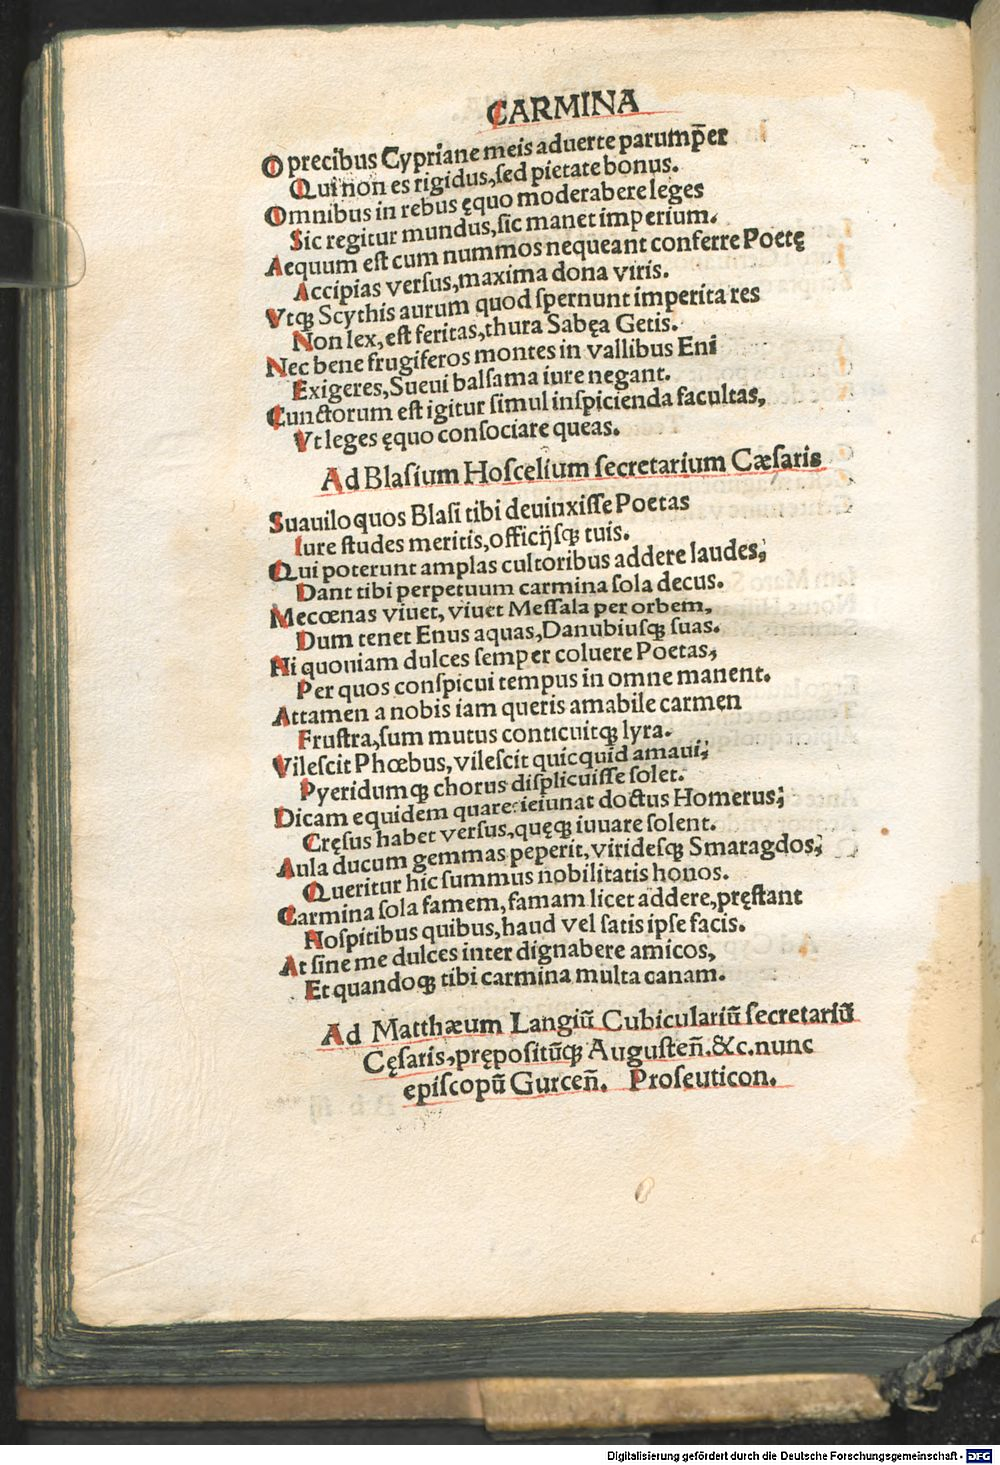 CARMINA
O precibus Cypriane meis aduerte parump̄er
Qui non es rigidus, sed pietate bonus.
Omnibus in rebus ęquo moderabere leges
Sic regitur mundus, sic manet imperium.
Aequum est cum nummos nequeant conferre Poetę
Accipias versus, maxima dona viris.
Vtqȝ Scythis aurum quod spernunt imperita res
Non lex, est feritas, thura Sabęa Getis.
Nec bene frugiferos montes in vallibus Eni
Exigeres, Sueui balsama iure negant.
Cunctorum est igitur simul inspicienda facultas,
Vt leges ęquo consociare queas.
Ad Blasium Hoscelium secretarium Cæsaris
Suauiloquos Blasi tibi deuinxisse Poetas
Iure studes meritis, officijsqȝ tuis.
Qui poterunt amplas cultoribus addere laudes;
Dant tibi perpetuum carmina sola decus.
Mecœnas viuet, viuet Messala per orbem,
Dum tenet Enus aquas, Danubiusqȝ suas.
Hi quoniam dulces semper coluere Poetas;
Per quos conspicui tempus in omne manent.
Attamen a nobis iam queris amabile carmen
Frustra, sum mutus conticuitqȝ lyra.
Vilescit Phœbus, vilescit quicquid amaui;
Pyeridumqȝ chorus displicuisse solet.
Dicam equidem quare: ieiunat doctus Homerus;
Cręsus habet versus, quęqȝ iuuare solent.
Aula ducum gemmas peperit, viridesqȝ Smaragdos;
Queritur hic summus nobilitatis honos.
Carmina sola famem, famam licet addere, pręstant
Hospitibus quibus, haud vel satis ipse facis.
At sine me dulces inter dignabere amicos,
Et quandoqȝ tibi carmina multa canam.
Ad Matthæum Langiū Cubiculariū secretariū
Cęsaris, prępositūqȝ Augusten̄. &c. nunc
episcopū Gurcen̄. Proseuticon.
Digitalisierung gefördert durch die Deutsche Forschungsgemeinschaft - DFG